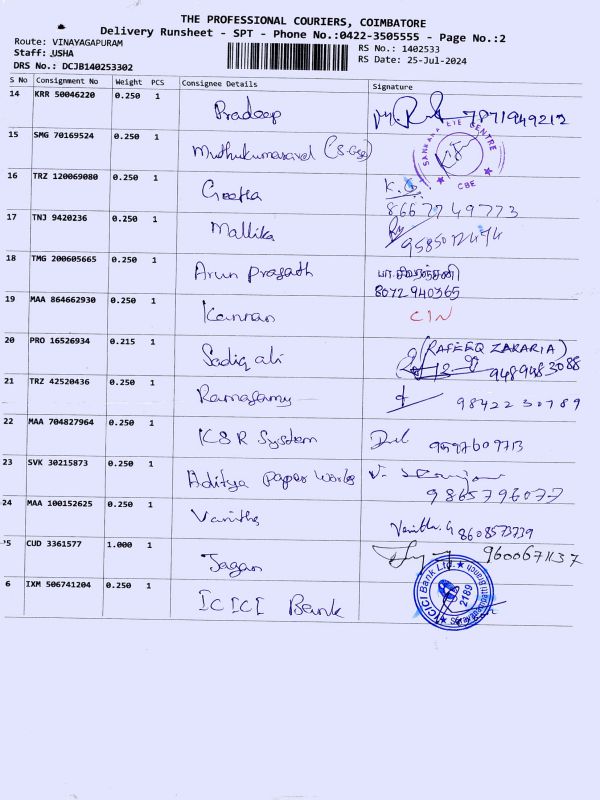 THE PROFESSIONAL COURIERS, COIMBATORE
Delivery Runsheet - SPT - Phone No.:0422-3505555 - Page No.:2
Route: VINAYAGAPURAM RS No.: 1402533
Staff: USHA RS Date: 25-Jul-2024
DRS No.: DCJB140253302
S No Consignment No Weight PCS Consignee Details Signature
14 KRR 50046220 0.250 1 Pradeep 7871949212
15 SMG 70169524 0.250 1 Muthukumaravel
SANKARA EYE CENTRE CBE
16 TRZ 120069080 0.250 1 Geetha K.G
8667749773
17 TNJ 9420236 0.250 1 Mallika
18 TMG 200605665 0.250 1 Arun Prasath
8072940365
19 MAA 864662930 0.250 1 Kannan CIN
20 PRO 16526934 0.215 1 Sadiq ali (RAFEEQ ZAKARIA)
9489483088
21 TRZ 42520436 1 Ramasamy 9842230789
22 MAA 704827964 0.250 1 KSR System
23 SVK 30215873 0.250 1 Aditya Paper Works
9865796077
24 MAA 100152625 0.250 1 Vanitha Vanitha. G 8608573739
25 CUD 3361577 1.000 1 Jagan 9600671137
6 IXM 506741204 0.250 1 ICICI Bank
ICICI Bank Ltd. 2189